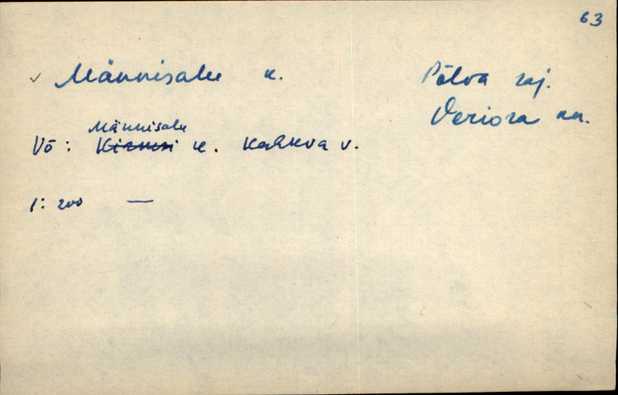 63
✓ Männisalu k.
Põlva raj.
Veriora kn.
Männisalu
Võ: k. Kahkva v.
1: 200 —